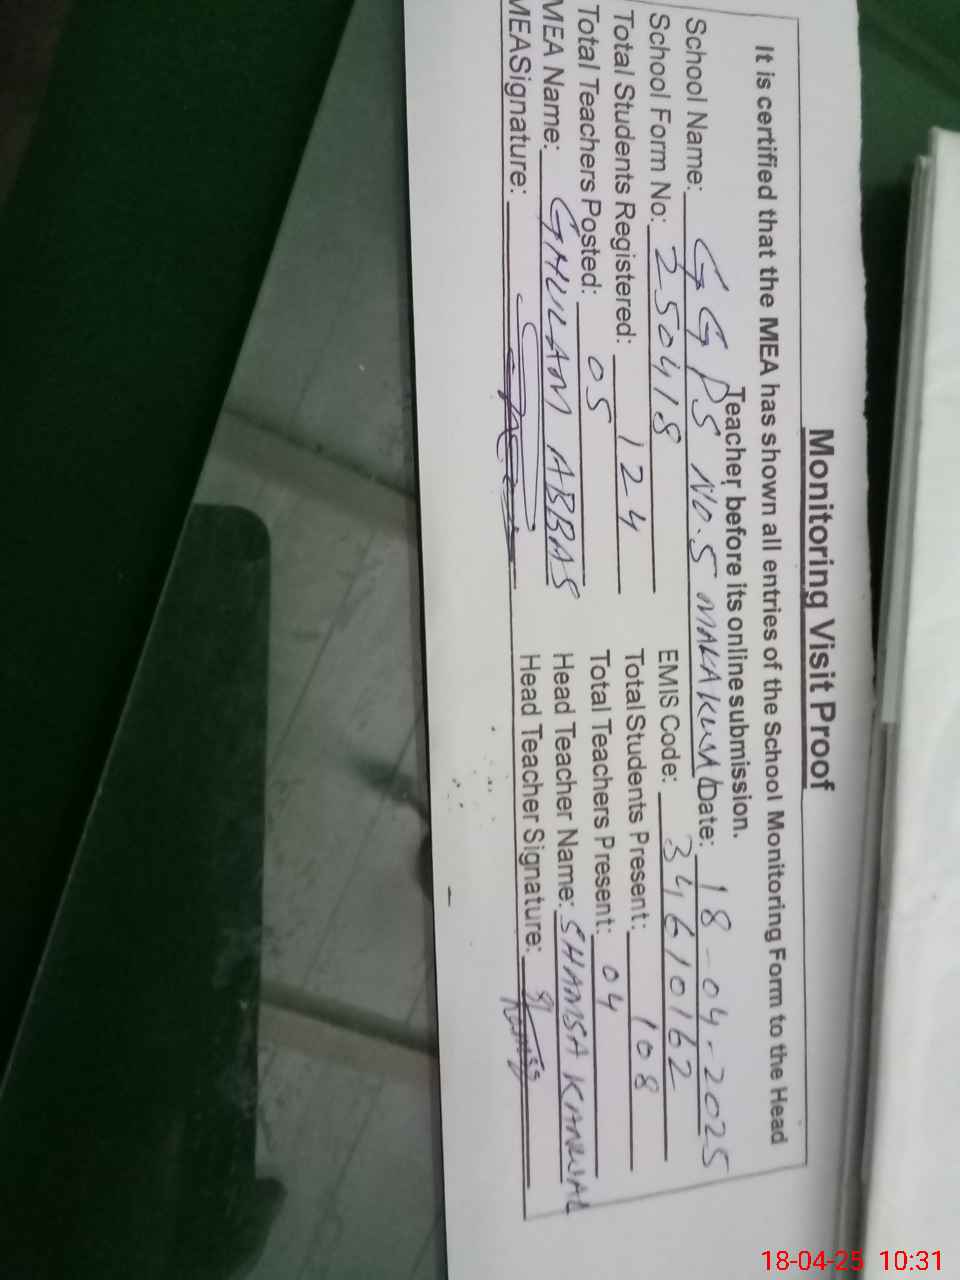 Monitoring Visit Proof
It is certified that the MEA has shown all entries of the School Monitoring Form to the Head
Teacher before its online submission.
School Name: GGPS NO.5 MAKAKWAL Date: 18-04-2025
School Form No: 250418 EMIS Code: 34610162
Total Students Registered: 124 Total Students Present: 108
Total Teachers Posted: 05 Total Teachers Present: 04
MEA Name: GHULAM ABBAS Head Teacher Name: SHAMSA KANWAL
MEASignature: Head Teacher Signature:
18-04-25 10:31